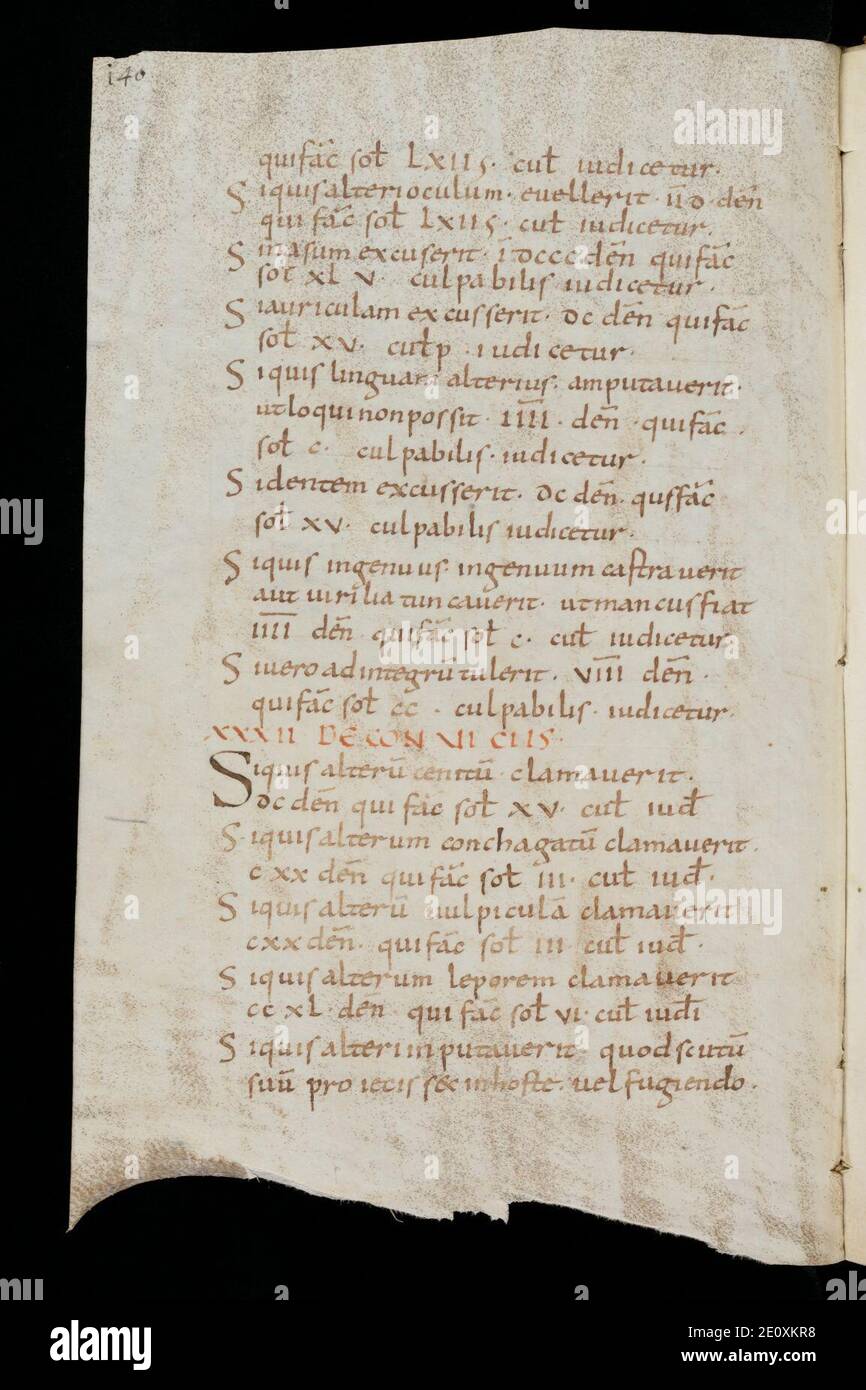 140
quifac̄ sol̄ LXIIS· cul̄ iudicetur·
Siquisalterioculum· euellerit· īīd· den̄
quifac̄ sol̄ LXIIS· cul̄ iudicetur·
Sinasum excuserit· ī dccc den̄ quifac̄
sol̄ XLV· culpabilis iudicetur·
Siauriculam excusserit· dc den̄ quifac̄
sol̄ XV· cul̄p· iudicetur·
Siquis linguam alterius· amputauerit·
utloquinonpossit· īīīī· den̄· quifac̄·
sol̄ c· culpabilis· iudicetur·
Sidentem excusserit· dc den̄· qusfac̄
sol̄ XV· culpabilis iudicetur·
Siquis ingenuus· ingenuum castrauerit
aut uirilia tuncauerit· utmancusfiat
īīīī den̄ quifac̄ sol̄ c· cul̄ iudicetur·
Siuero adintegrū tulerit· vīīī den̄·
quifac̄ sol̄ cc· culpabilis· iudicetur·
XXXII DE CONVICIIS·
Siquis alterū cenitū· clamauerit·
dc den̄ quifac̄ sol̄ XV· cul̄ iud̄
Siquisalterum conchagatū clamauerit·
cxx den̄ quifac̄ sol̄ III· cul̄ iud̄·
Siquisalterū uulpiculā clamauerit
cxx den̄· quifac̄ sol̄ III· cul̄ iud̄·
Siquisalterum leporem clamauerit
ccXL· den̄ quifac̄ sol̄ VI· cul̄ iud̄i
Siquisalteri imputauerit· quodscutū
suū proiecisset inhoste· uelfugiendo·
alamy
Image ID: 2E0XKR8
www.alamy.com